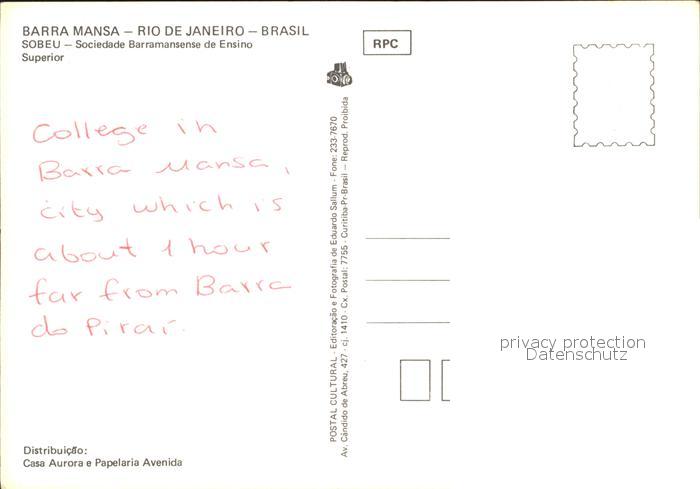 BARRA MANSA — RIO DE JANEIRO — BRASIL
SOBEU — Sociedade Barramansense de Ensino
Superior
RPC
College in
Barra Mansa,
city which is
about 1 hour
far from Barra
do Piraí.
POSTAL CULTURAL - Editoração e Fotografia de Eduardo Sallum - Fone: 233-7670
Av. Cândido de Abreu, 427 - cj. 1410 - Cx. Postal: 7755 - Curitiba-Pr-Brasil — Reprod. Proibida
privacy protection
Datenschutz
Distribuição:
Casa Aurora e Papelaria Avenida